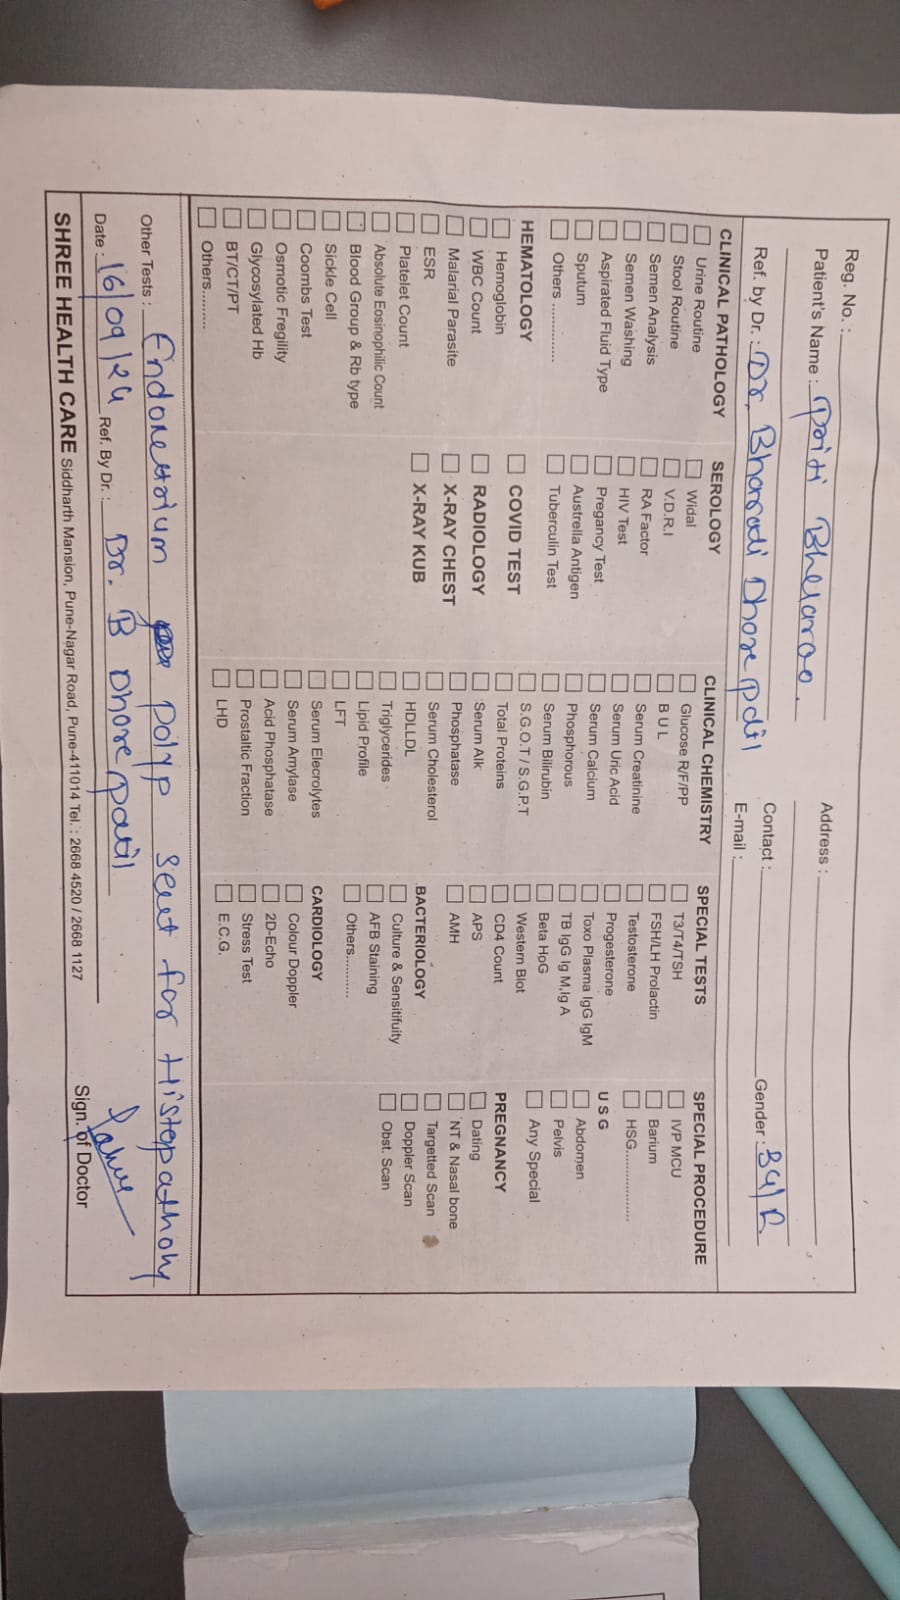 Reg. No. :
Patient's Name : Priti Bhelarao.
Address :
Contact :
Gender : 34/F
Ref. by Dr. : Dr. Bharati Dhorepatil
E-mail :
CLINICAL PATHOLOGY
Urine Routine
Stool Routine
Semen Analysis
Semen Washing
Aspirated Fluid Type
Sputum
Others .............
HEMATOLOGY
Hemoglobin
WBC Count
Malarial Parasite
ESR
Platelet Count
Absolute Eosinophilic Count
Blood Group & Rb type
Sickle Cell
Coombs Test
Osmotic Fregility
Glycosylated Hb
BT/CT/PT
Others.........
SEROLOGY
Widal
V.D.R.I
RA Factor
HIV Test
Pregancy Test
Austrella Antigen
Tuberculin Test
COVID TEST
RADIOLOGY
X-RAY CHEST
X-RAY KUB
CLINICAL CHEMISTRY
Glucose R/F/PP
B U L
Serum Creatinine
Serum Uric Acid
Serum Calcium
Phosphorous
Serum Billrubin
S.G.O.T / S.G.P.T
Total Proteins
Serum Alk
Phosphatase
Serum Cholesterol
HDLLDL
Triglycerides
Lipid Profile
LFT
Serum Elecrolytes
Serum Amylase
Acid Phosphatase
Prostaltic Fraction
LHD
SPECIAL TESTS
T3/T4/TSH
FSH/LH Prolactin
Testosterone
Progesterone
Toxo Plasma IgG IgM
TB IgG Ig M,Ig A
Beta HoG
Western Blot
CD4 Count
APS
AMH
BACTERIOLOGY
Culture & Sensitifuity
AFB Staining
Others...........
CARDIOLOGY
Colour Doppler
2D-Echo
Stress Test
E.C.G.
SPECIAL PROCEDURE
IVP MCU
Barium
HSG................
U S G
Abdomen
Pelvis
Any Special
PREGNANCY
Dating
NT & Nasal bone
Targetted Scan
Doppler Scan
Obst. Scan
Other Tests : Endometrium polyp sent for Histopathony
Date : 16/09/24 Ref. By Dr. : Dr. B Dhorepatil
Sign. of Doctor
SHREE HEALTH CARE Siddharth Mansion, Pune-Nagar Road, Pune-411014 Tel. : 2668 4520 / 2668 1127